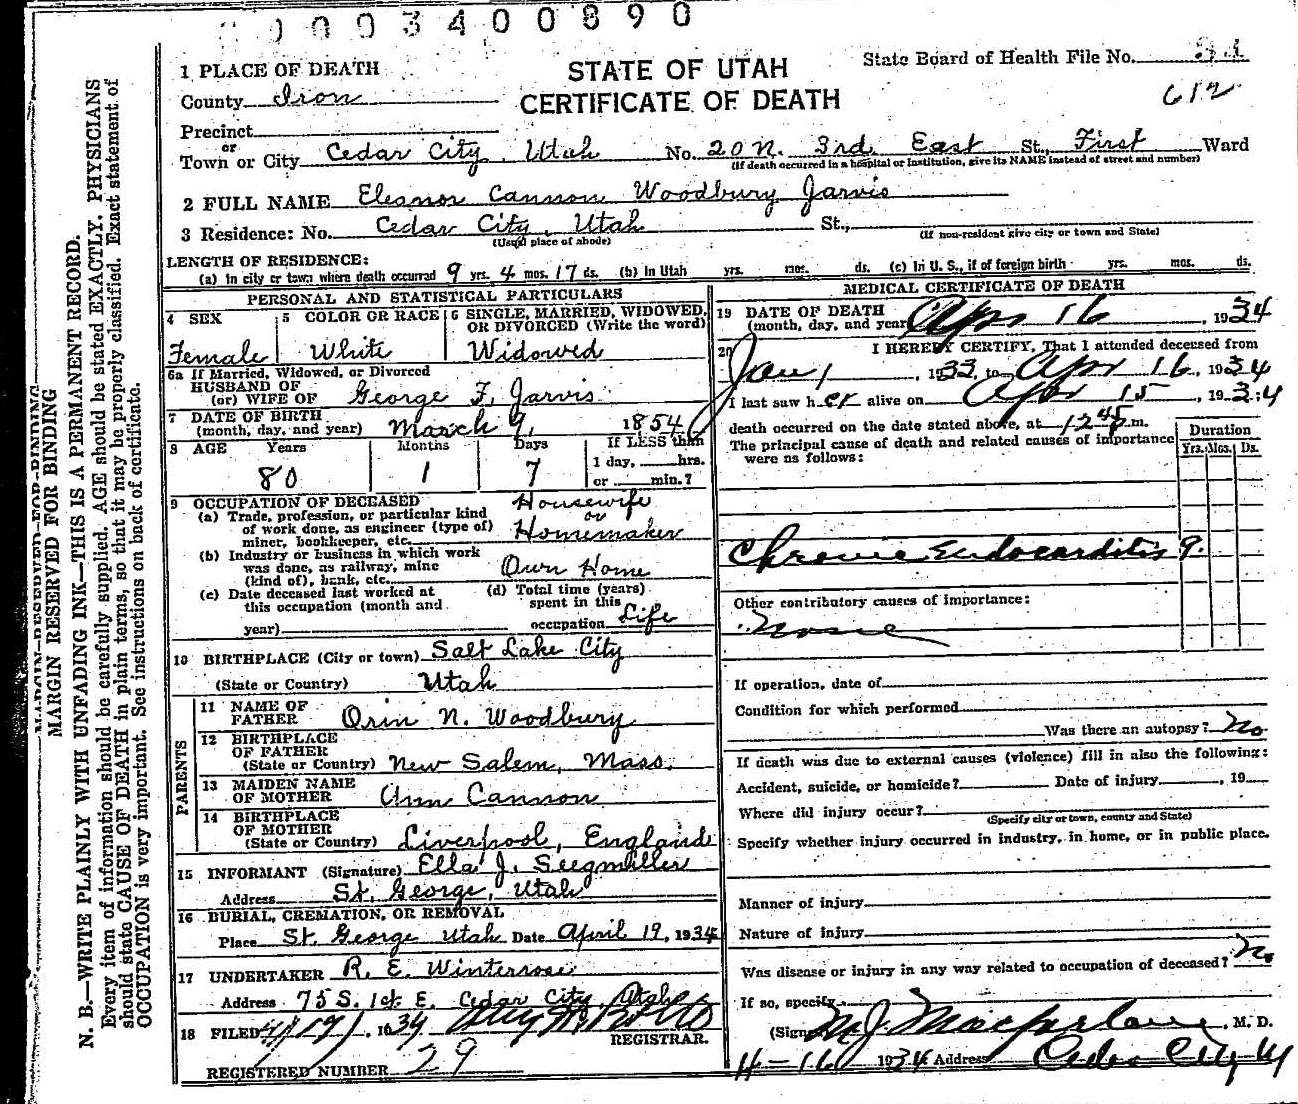 0003400890
STATE OF UTAH
CERTIFICATE OF DEATH
State Board of Health File No.
612
1 PLACE OF DEATH
County Iron
Precinct
or
Town or City Cedar City, Utah No. 20 N. 3rd East St., First Ward
(If death occurred in a hospital or institution, give its NAME instead of street and number)
2 FULL NAME Eleanor Cannon Woodbury Jarvis
3 Residence: No. Cedar City, Utah St.,
(Usual place of abode) (If non-resident give city or town and State)
LENGTH OF RESIDENCE:
(a) In city or town where death occurred 9 yrs. 4 mos. 17 ds. (b) In Utah yrs. mos. ds. (c) In U. S., if of foreign birth yrs. mos. ds.
PERSONAL AND STATISTICAL PARTICULARS
4 SEX 5 COLOR OR RACE 6 SINGLE, MARRIED, WIDOWED, OR DIVORCED (Write the word)
Female White Widowed
6a If Married, Widowed, or Divorced
HUSBAND OF
(or) WIFE OF George F. Jarvis
7 DATE OF BIRTH
(month, day, and year) March 9, 1854
8 AGE Years Months Days If LESS than
80 1 7 1 day, hrs.
or min.?
9 OCCUPATION OF DECEASED Housewife
(a) Trade, profession, or particular kind or
of work done, as engineer (type of) Homemaker
miner, bookkeeper, etc.
(b) Industry or business in which work
was done, as railway, mine Own Home
(kind of), bank, etc.
(c) Date deceased last worked at (d) Total time (years)
this occupation (month and spent in this
year) occupation Life
10 BIRTHPLACE (City or town) Salt Lake City
(State or Country) Utah
PARENTS
11 NAME OF
FATHER Orin N. Woodbury
12 BIRTHPLACE
OF FATHER
(State or Country) New Salem, Mass.
13 MAIDEN NAME
OF MOTHER Ann Cannon
14 BIRTHPLACE
OF MOTHER
(State or Country) Liverpool, England
15 INFORMANT (Signature) Ella J. Seegmiller
Address St. George, Utah
16 BURIAL, CREMATION, OR REMOVAL
Place St. George Utah Date April 19, 1934
17 UNDERTAKER R. E. Winterrose
Address 75 S. 1st. E. Cedar City, Utah
18 FILED 4/17/, 1934
REGISTRAR.
REGISTERED NUMBER 29
MEDICAL CERTIFICATE OF DEATH
19 DATE OF DEATH
(month, day, and year) Apr 16, 1934
20 I HEREBY CERTIFY, That I attended deceased from
Jan 1, 1933, to Apr 16, 1934
I last saw her alive on Apr 15, 1934
death occurred on the date stated above, at 12 45 m.
The principal cause of death and related causes of importance
were as follows:
Duration
Yrs. Mos. Ds.
Chronic Endocarditis 9.
Other contributory causes of importance:
None
If operation, date of
Condition for which performed
Was there an autopsy? No
If death was due to external causes (violence) fill in also the following:
Accident, suicide, or homicide? Date of injury, 19
Where did injury occur?
(Specify city or town, county and State)
Specify whether injury occurred in industry, in home, or in public place.
Manner of injury
Nature of injury
Was disease or injury in any way related to occupation of deceased? No
If so, specify
(Signed) M. J. Macfarlane, M. D.
4-16 1934 Address Cedar City, U
MARGIN RESERVED FOR BINDING
MARGIN RESERVED FOR BINDING
N. B.—WRITE PLAINLY WITH UNFADING INK—THIS IS A PERMANENT RECORD.
Every item of information should be carefully supplied. AGE should be stated EXACTLY. PHYSICIANS
should state CAUSE OF DEATH in plain terms, so that it may be properly classified. Exact statement of
OCCUPATION is very important. See instructions on back of certificate.